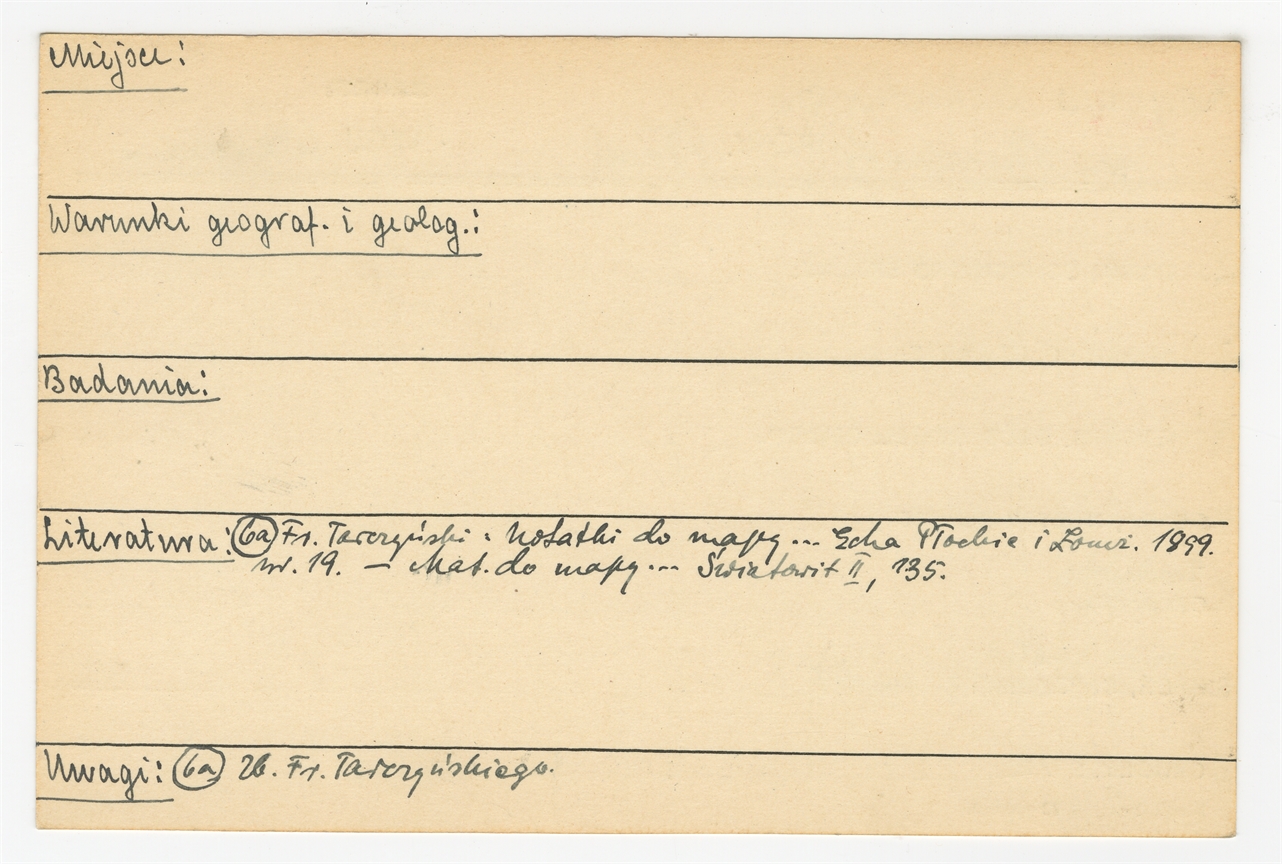 Miejsce:
Warunki geograf. i geolog.:
Badania:
Literatura: 6a Fr. Tarczyński: Notatki do mapy... Echa Płockie i Łomż. 1899.
nr. 19. — Mat. do mapy... Światowit II, 135.
Uwagi: 6a Zb. Fr. Tarczyńskiego.